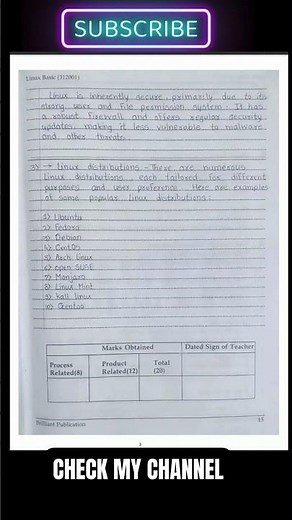 SUBSCRIBE
Linux Basic (312001)
Linux is inherently secure, primarily due to its
strong user and file permission system. It has
a robust Firewall and offers regular security
updates, making it less vulnerable to malware
and other threats.
3) → Linux distributions - There are numerous
Linux distributions, each tailored for different
purposes and user preference. Here are examples
of some popular Linux distributions:
1) Ubuntu
2) Fedora
3) Debian
4) CentOS
5) Arch Linux
6) open SUSE
7) Manjaro
8) Linux Mint
9) Kali linux
10) Gentoo
Marks Obtained Dated Sign of Teacher
Process Related(8) Product Related(12) Total (20)
Brilliant Publication 15
CHECK MY CHANNEL